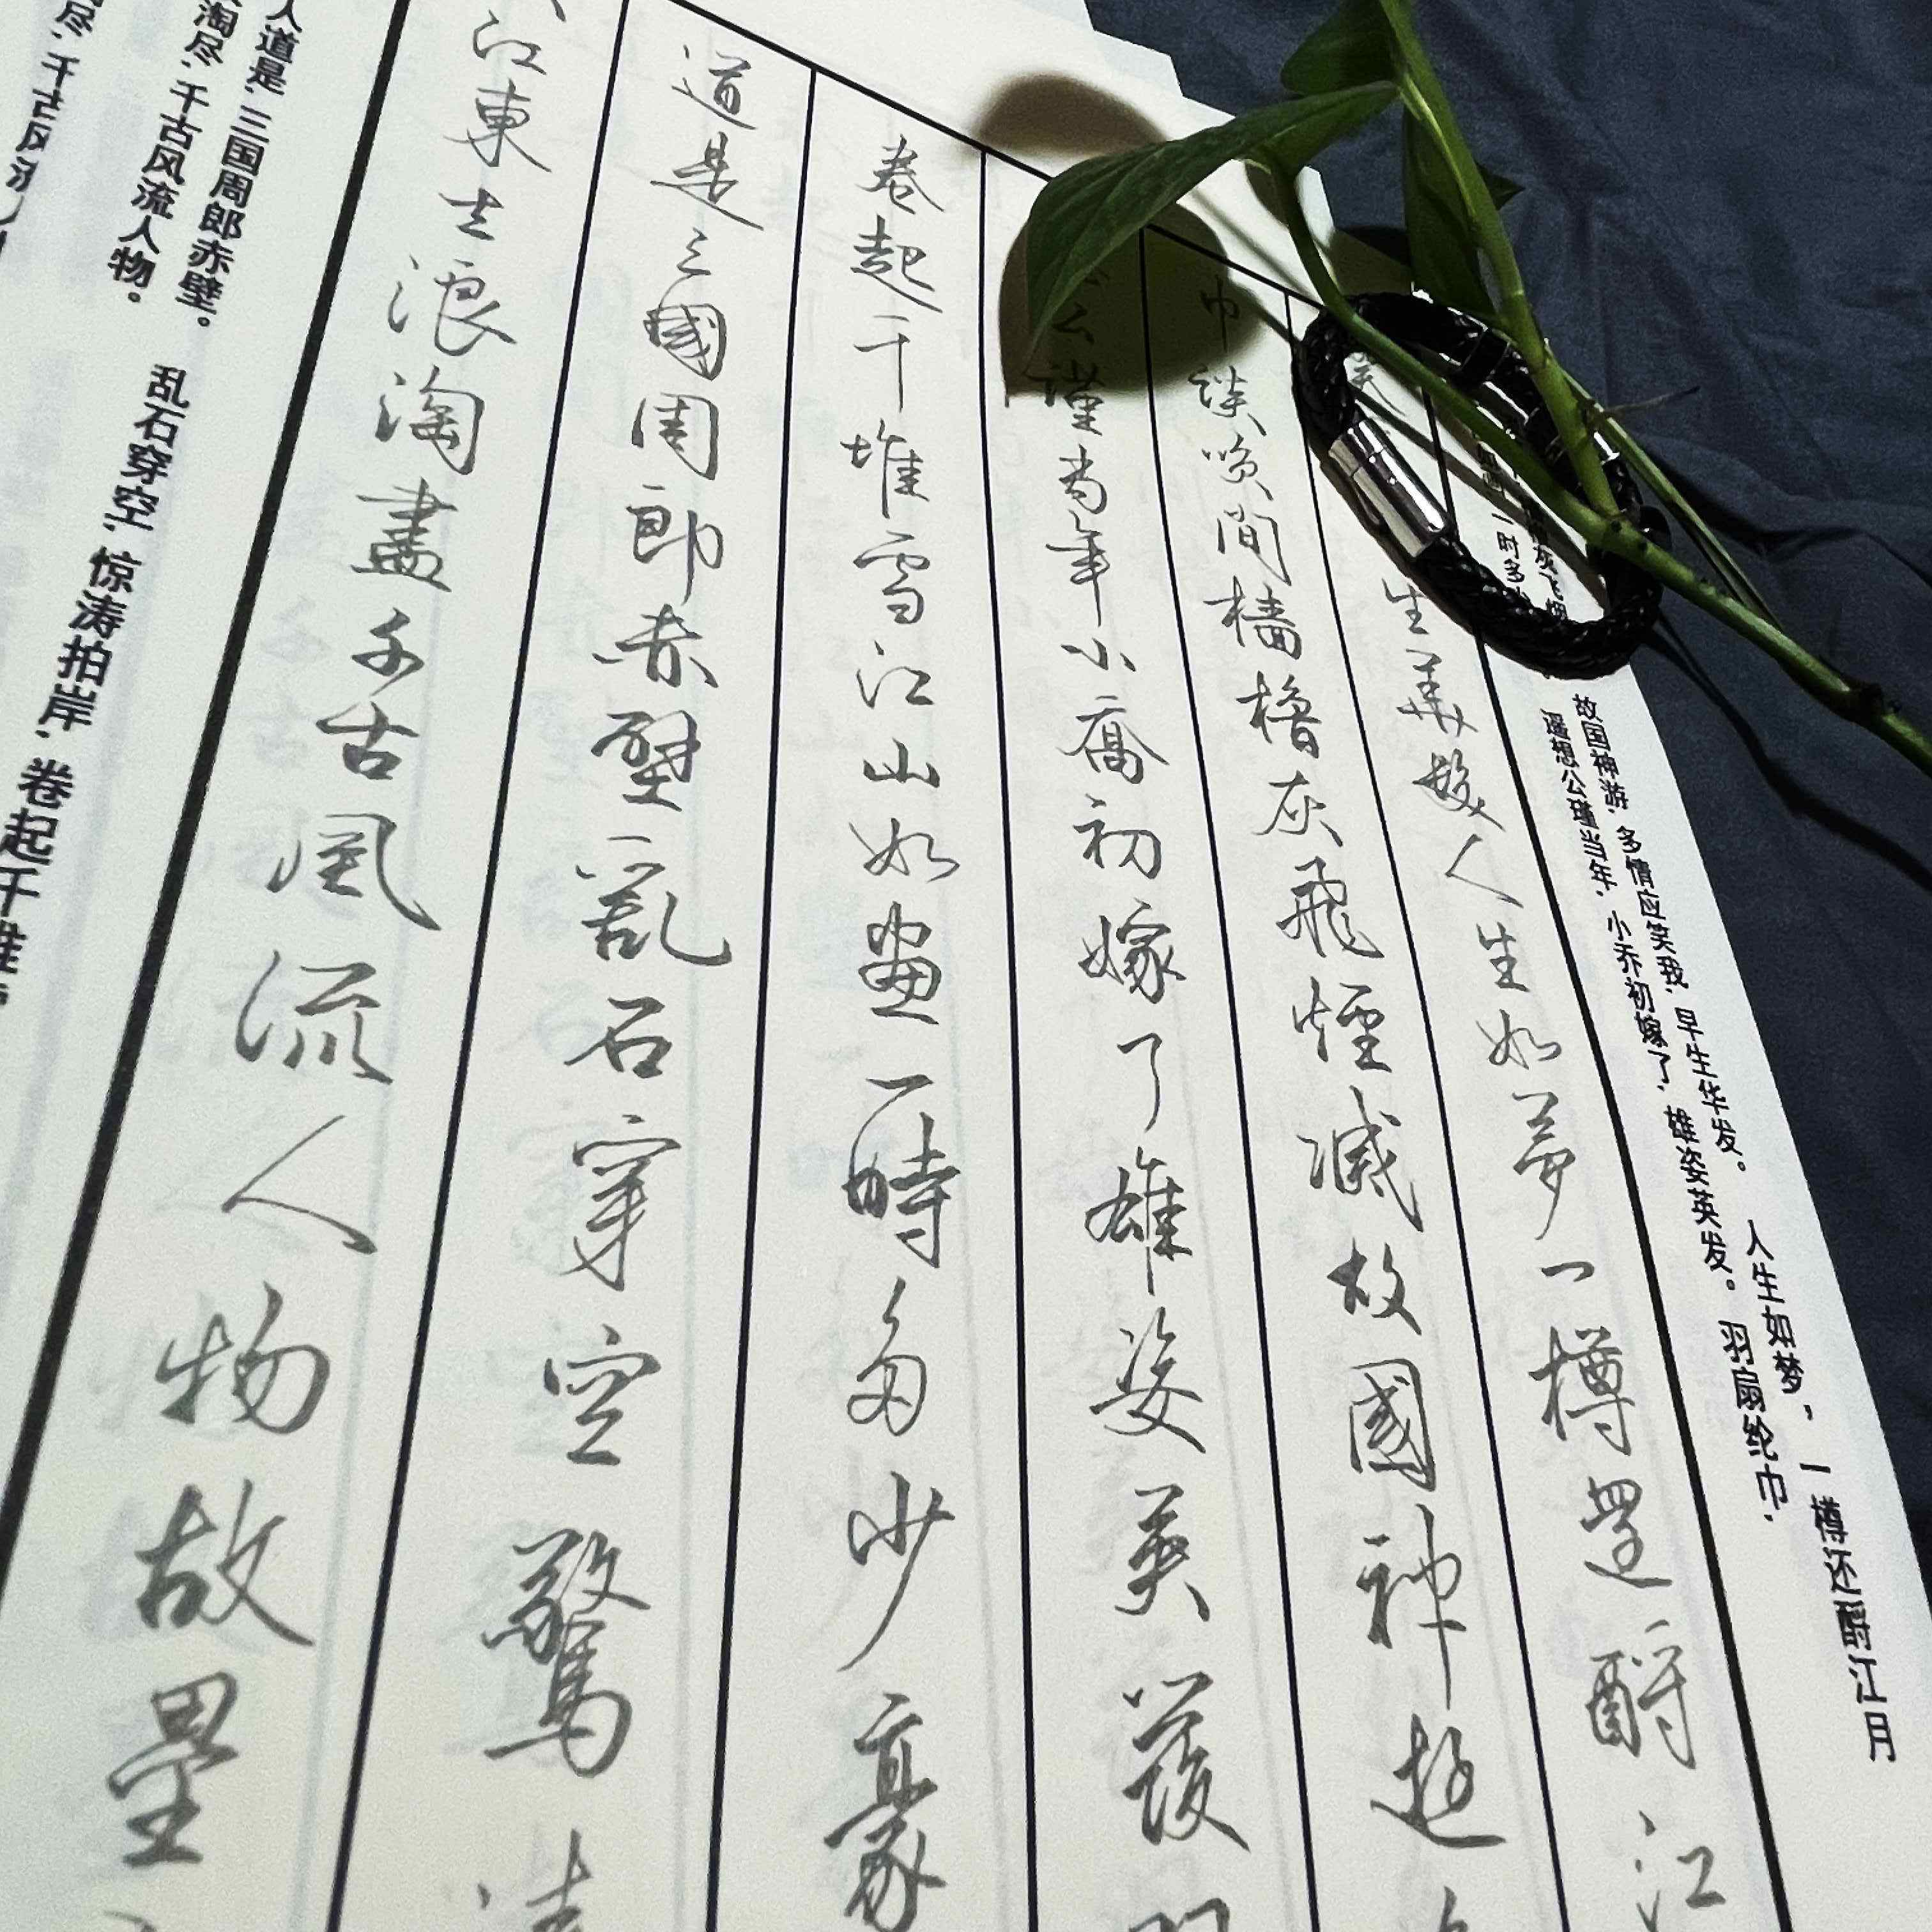 尽,千古风流
淘尽,千古风流人物。
人道是,三国周郎赤壁。 乱石穿空,惊涛拍岸,卷起千堆
江東去浪淘盡千古風流人物故壘
道是三國周郎赤壁亂石穿空驚濤
卷起千堆雪江山如畫一時多少豪
公瑾當年小喬初嫁了雄姿英發
巾談笑間檣櫓灰飛煙滅故國神遊
生華髮人生如夢一樽還酹江
一时多 遥想公瑾当年,小乔初嫁了,雄姿英发。羽扇纶巾,
灰飞烟 故国神游,多情应笑我,早生华发。 人生如梦,一樽还酹江月